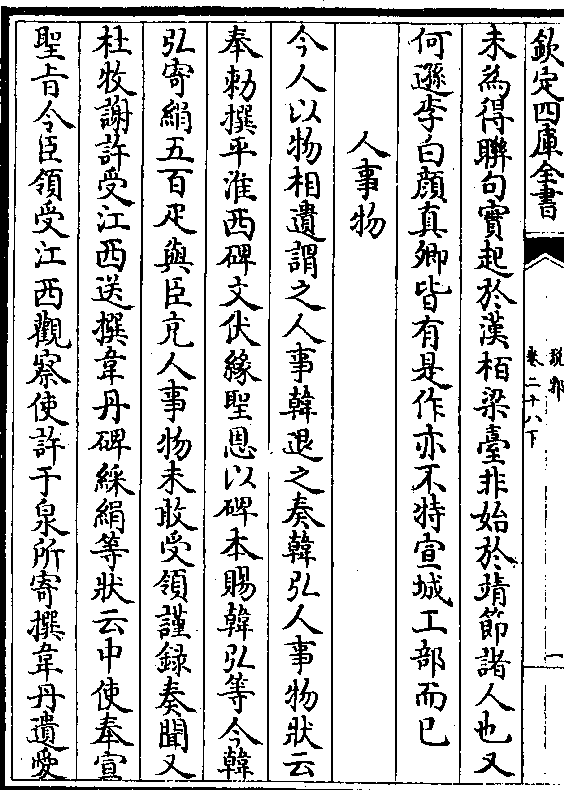 欽定四庫全書
說郛
卷二十八下
一
未為得聯句實起於漢柏梁臺非始於靖節諸人也又
何遜李白顔真卿皆有是作亦不特宣城工部而已
人事物
今人以物相遺謂之人事韓退之奏韓弘人事物狀云
奉勅撰平淮西碑文伏緣聖恩以碑本賜韓弘等今韓
弘寄絹五百疋與臣充人事物未敢受領謹録奏聞又
杜牧謝許受江西送撰韋丹碑綵絹等狀云中使奉宣
聖旨令臣領受江西觀察使許于泉所寄撰韋丹遺愛